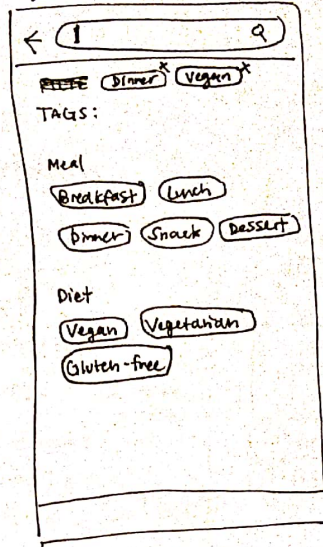 Dinner x Vegan x
TAGS:
Meal
Breakfast Lunch
Dinner Snack Dessert
Diet
Vegan Vegetarian
Gluten-free